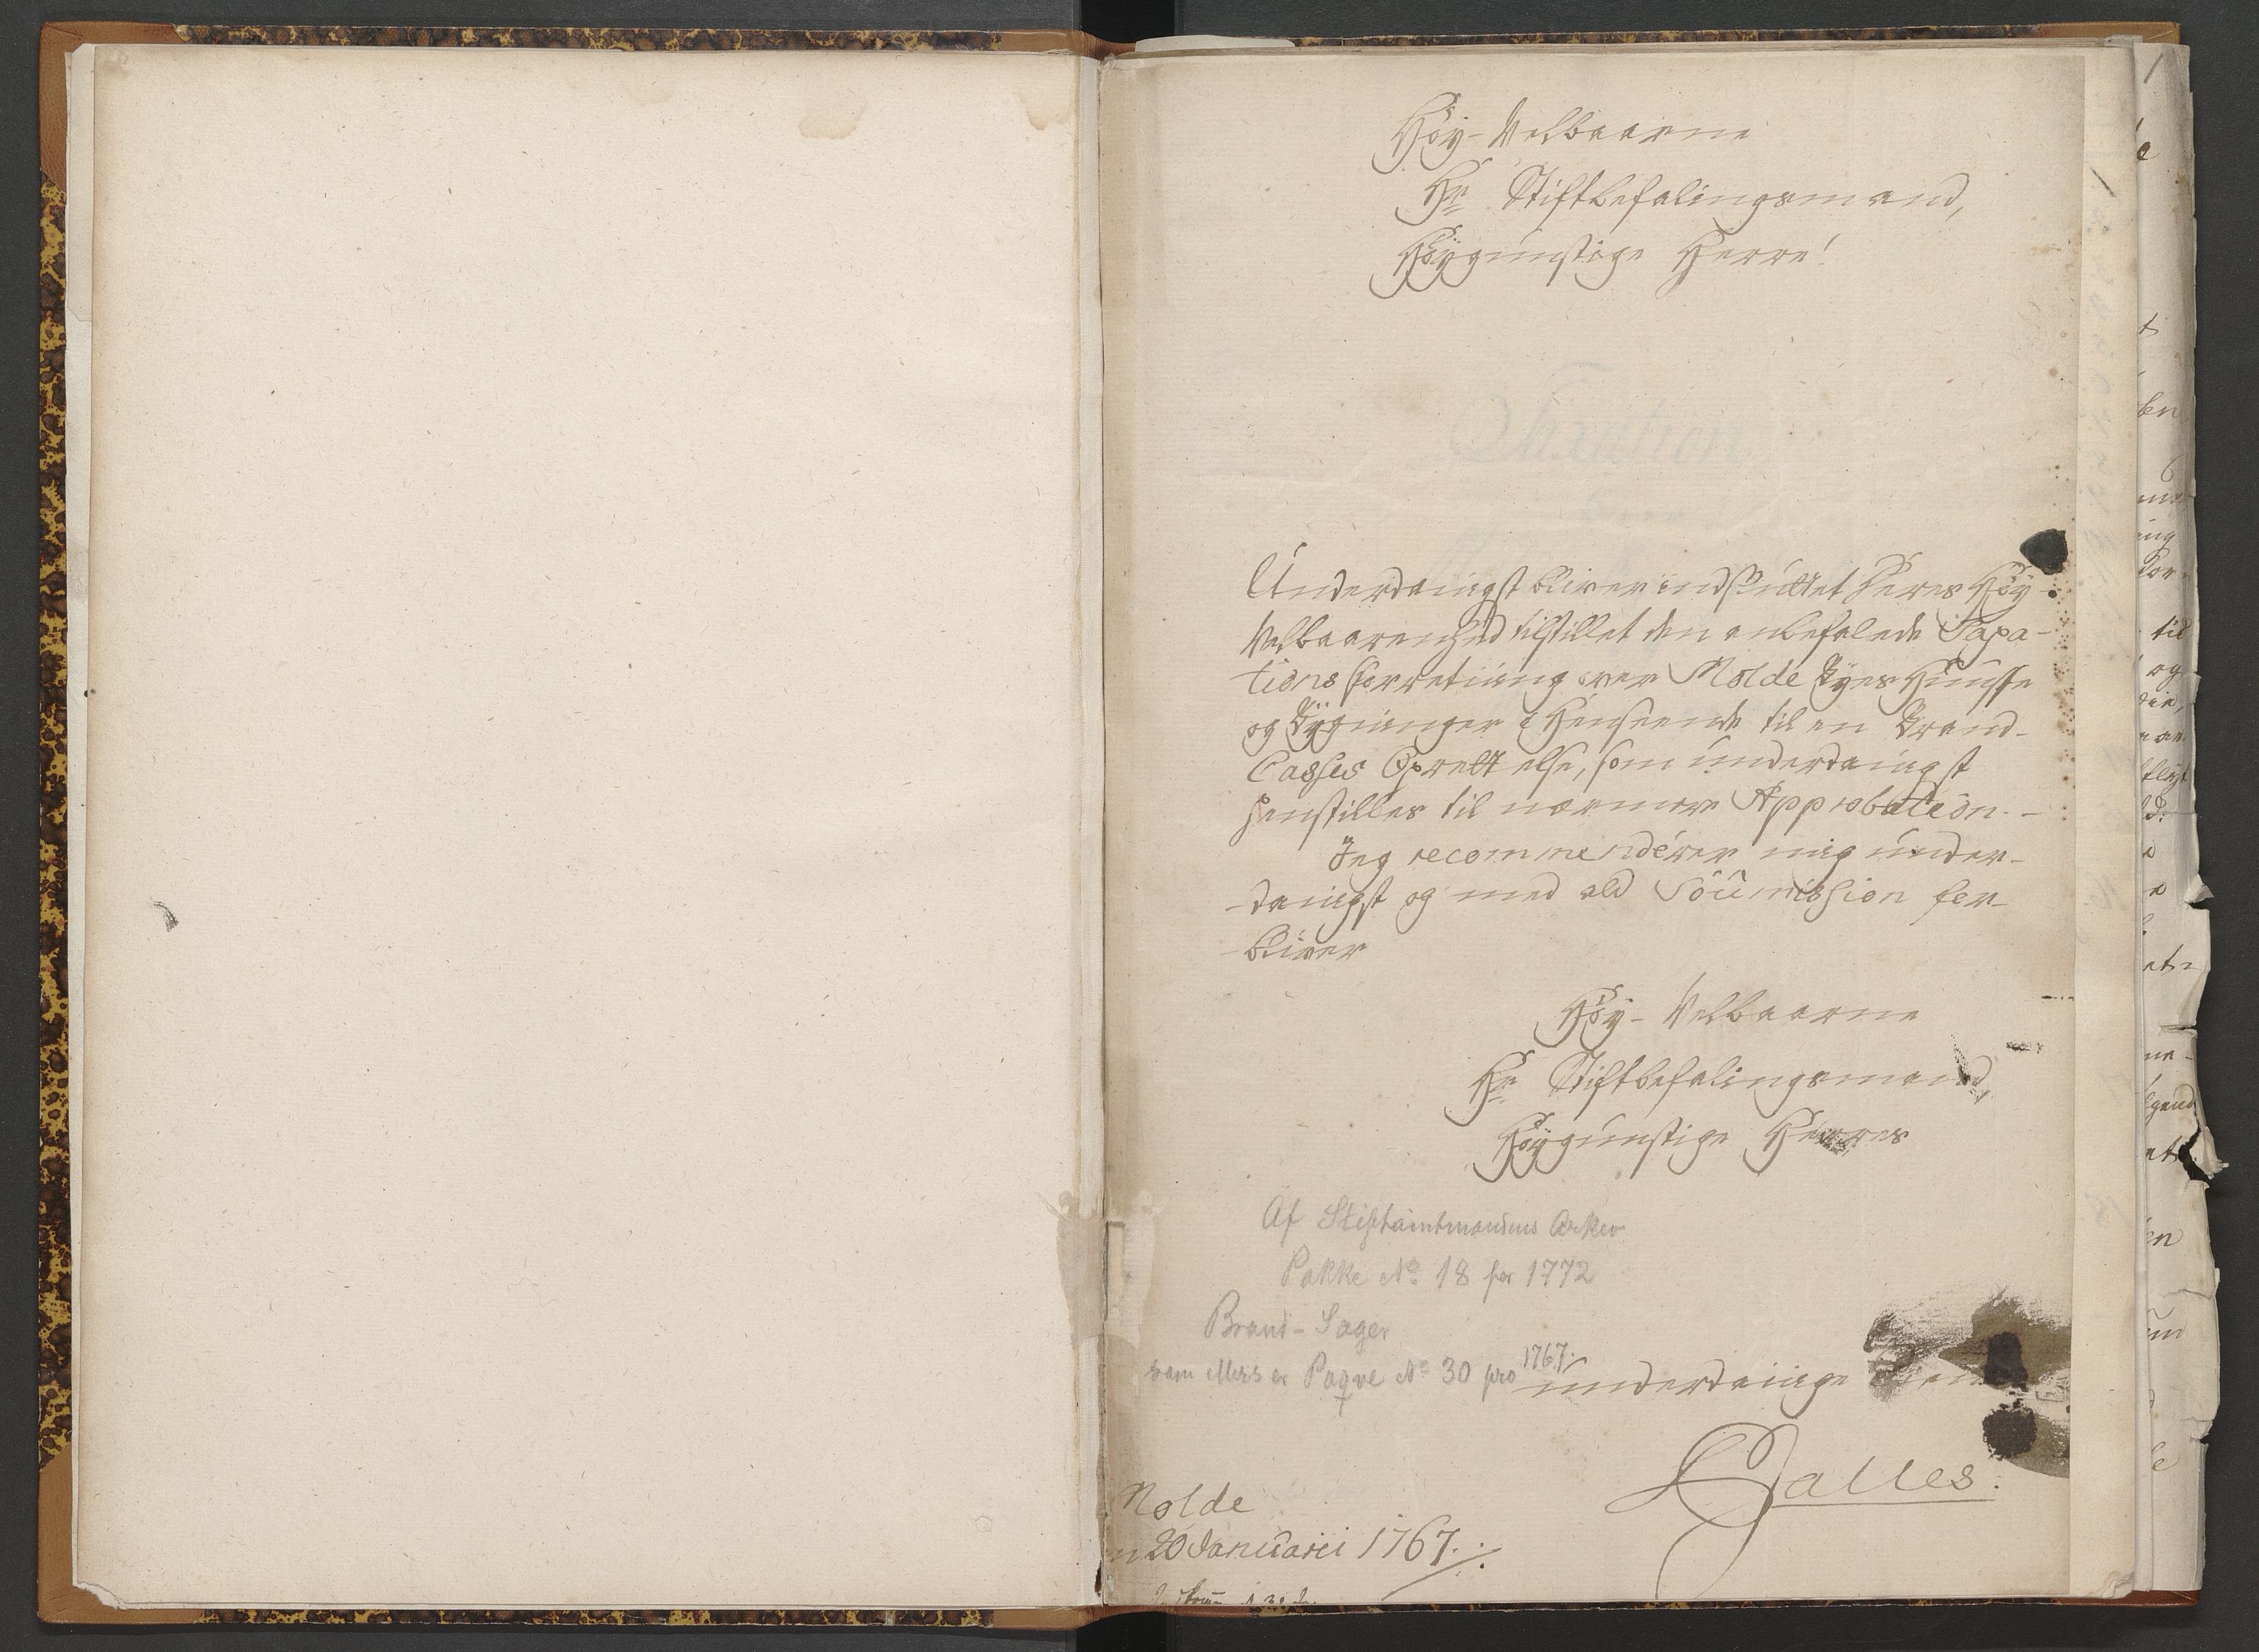 Höy-Velbaarne
Hr Stiftbefalingsmand,
Höygunstige Herre!
Underdanigst bliver indsluttet Deres Höy-
Velbaarenhed tilstillet den anbefalede Taxa-
tions forretning over Molde Byes Huusse
og Bygninger i Henseende til en Brand-
Casses Oprettelse, som underdanigst
henstilles til nærmere Approbation. -
Jeg recommenderer mig under-
-danigst og med ald Soumission for-
-bliver
Höy-Velbaarne
Hr Stiftbefalingsmand
Höygunstige Herres
Af Stiftamtmandens Arkiv
Pakke No 18 for 1772
Brand-Sager
som ellers er Paqve No 30 pro 1767.
underdanige
Dalles.
Molde
20 Januarii 1767.